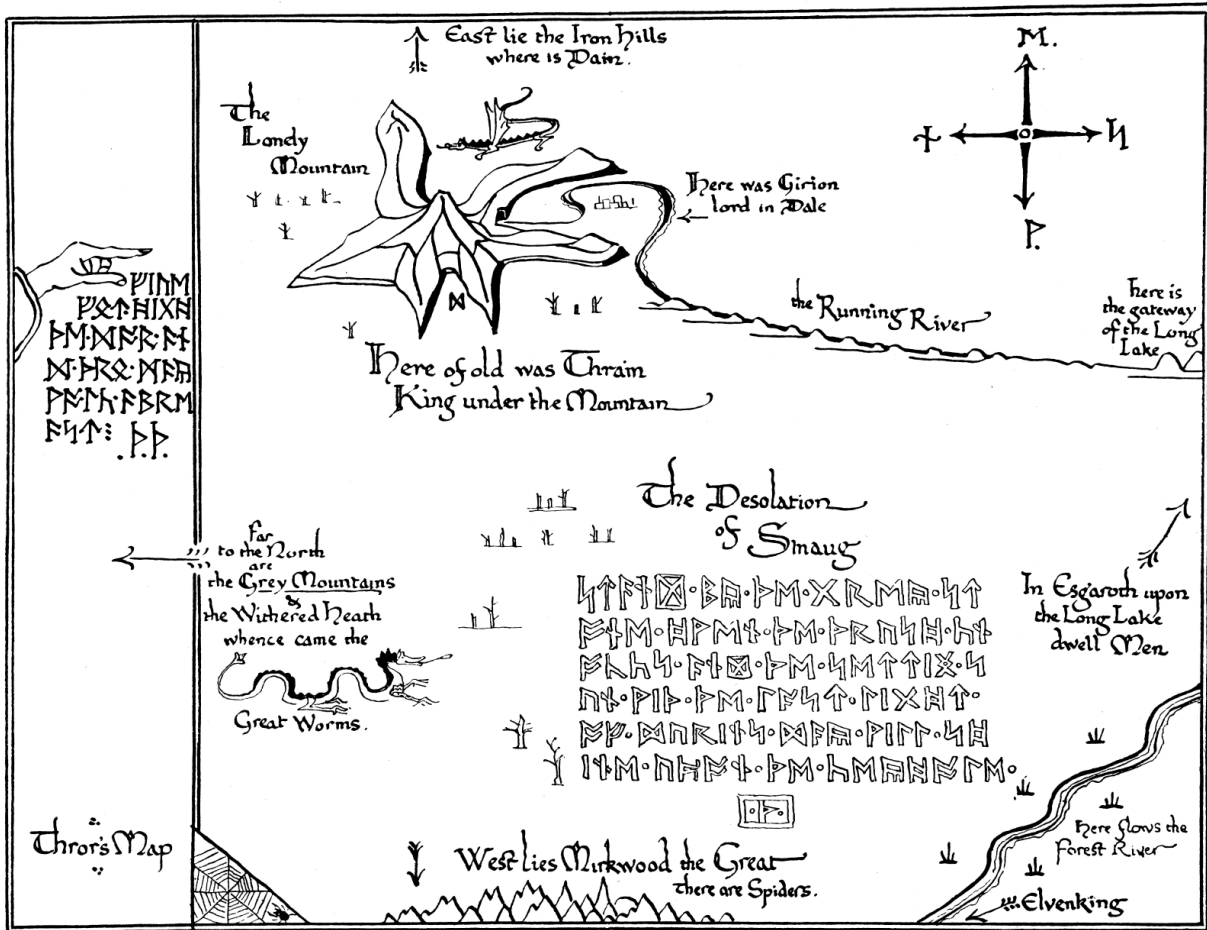 East lie the Iron Hills
where is Dain.
ᛖ.
ᚾ
ᛋ
ᚹ.
The
Lonely
Mountain
Here was Girion
lord in Dale
ᚠᛁᚢᛖ
ᚠᚩᛏ᛫ᚻᛁᚷᚻ
ᚦᛖ᛫ᛞᚩᚱ᛫ᚪᚾ
ᛞ᛫ᚦᚱᛟ᛫ᛗᚪᚣ
ᚹᚪ᛫ᛚᚳ᛫ᚪᛒᚱᛖ
ᚪᛋᛏ⁝ ᛫ᚦ᛫ᚦ᛫
ᛞ
the Running River
here is
the gateway
of the Long
Lake
Here of old was Thrain
King under the Mountain
The Desolation
of Smaug
Far
to the North
are
the Grey Mountains
&
the Withered Heath
whence came the
Great Worms.
ᛋᛏᚪᚾᛞ᛫ᛒᚣ᛫ᚦᛖ᛫ᚷᚱᛖᚣ᛫ᛋᛏ
ᚩᚾᛖ᛫ᚻᚹᛖᚾ᛫ᚦᛖ᛫ᚦᚱᚢᛋᚻ᛫ᚳᚾ
ᚩᚳᚳᛋ᛫ᚪᚾᛞ᛫ᚦᛖ᛫ᛋᛖᛏᛏᛁᛝ᛫ᛋ
ᚢᚾ᛫ᚹᛁᚦ᛫ᚦᛖ᛫ᛚᚪᛋᛏ᛫ᛚᛁᚷᚻᛏ᛫
ᚩᚠ᛫ᛞᚢᚱᛁᚾᛋ᛫ᛞᚪᚣ᛫ᚹᛁᛚᛚ᛫ᛋᚻ
ᛁᚾᛖ᛫ᚢᛈᚩᚾ᛫ᚦᛖ᛫ᚳᛖᚣᚻᚩᛚᛖ᛫
᛫ᚦ᛫
In Esgaroth upon
the Long Lake
dwell Men
Thror's Map
West lies Mirkwood the Great
there are Spiders.
Here flows the
Forest River
Elvenking